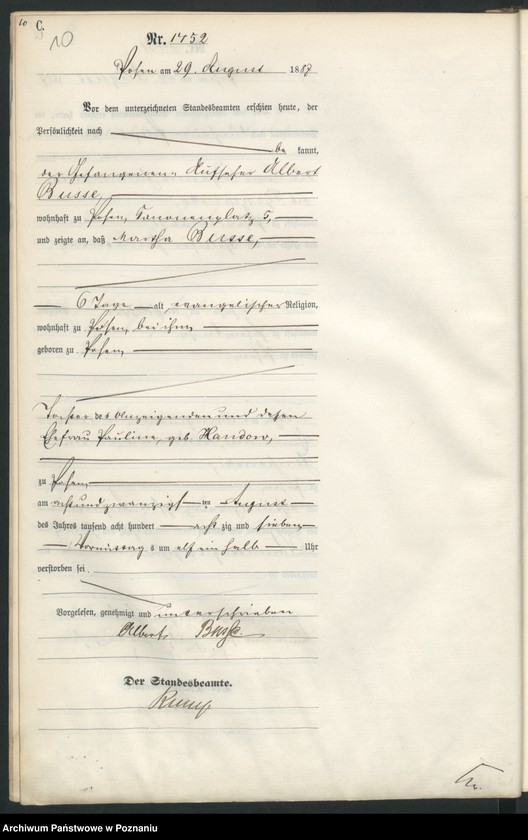 10 C.
10
Nr. 1452
Posen am 29. August 1887
Vor dem unterzeichneten Standesbeamten erschien heute, der
Persönlichkeit nach
be kannt,
der Gefangenen-Aufseher Albert
Busse,
wohnhaft zu Posen, Kanonenplatz 5,
und zeigte an, daß Martha Busse,
6 Tage alt, evangelischer Religion,
wohnhaft zu Posen, bei ihm
geboren zu Posen,
Tochter des Anzeigenden und dessen
Ehefrau Pauline, geb. Mandow,
zu Posen,
am achtundzwanzigsten August
des Jahres tausend acht hundert achtzig und sieben
Vormittags um elf ein halb Uhr
verstorben sei.
Vorgelesen, genehmigt und unterschrieben
Albert Busse.
Der Standesbeamte.
Archiwum Państwowe w Poznaniu